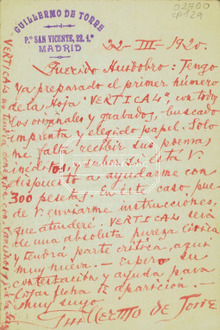 GUILLERMO DE TORRE
Pº SAN VICENTE, 22. 4.º
MADRID
22-III-1920.
Querido Huidobro: Tengo
ya preparado el primer número
de la Hoja: VERTICAL, con todos
los originales y grabados, buscado
imprenta y elegido papel. Solo
me falta recibir sus poemas
inéditos, y saber si está V.
dispuesto a ayudarme con
300 pesetas. En este caso, pue-
de V. enviarme instrucciones,
que atenderé. VERTICAL será
de una absoluta pureza lírica
y tendrá parte crítica, aun
muy nueva. — Espero su
contestación y ayuda para
fijar fecha de aparición. —
Muy suyo
Guillermo de Torre